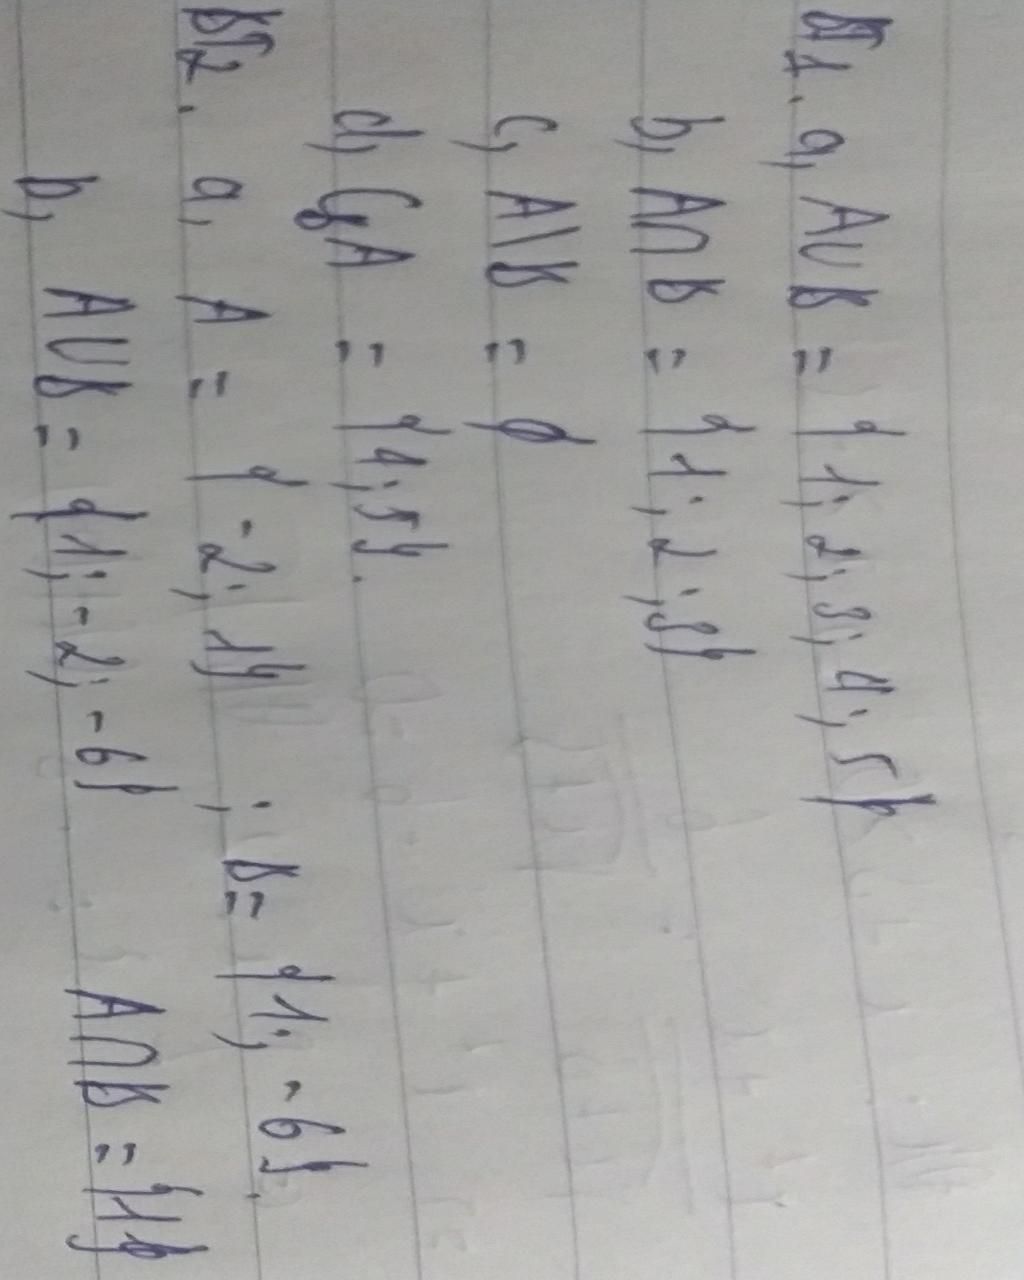 BT1. a, A∪B = {1; 2; 3; 4; 5}
b, A∩B = {1; 2; 3}
c, A\B = ∅
d, C_B A = {4; 5}.
BT2. a, A = {-2; 1} ; B = {1; -6}.
b, A∪B = {1; -2; -6} A∩B = {1}